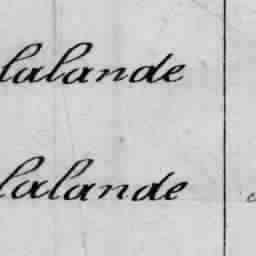 lalande
lalande